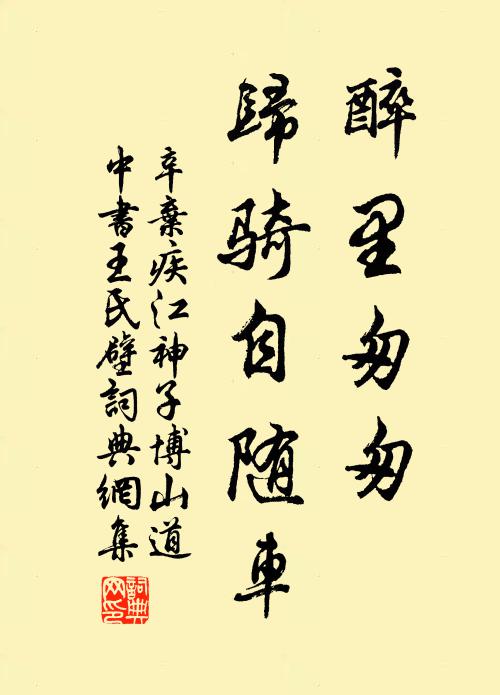 醉里匆匆
歸騎自随車
辛棄疾江神子博山道
中書王氏壁詞典網集
詞典网印